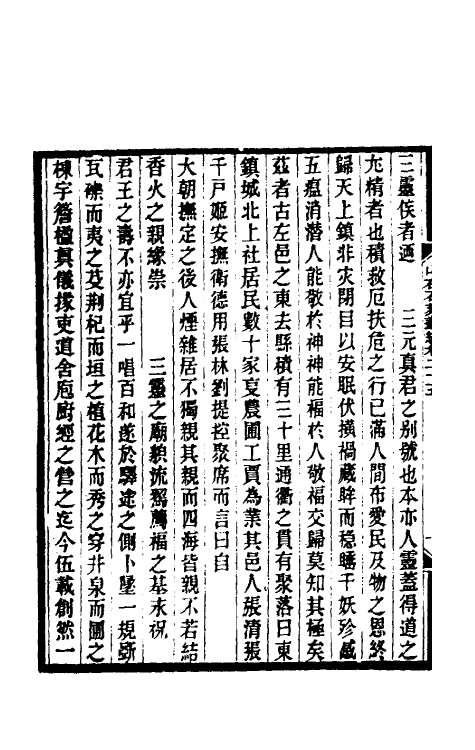 三靈侯者迺　　三元真君之别號也本亦人靈蓋得道之
尤精者也積救厄扶危之行已滿人間布愛民及物之恩終
歸天上鎮非灾閉目以安眠伏橫禍藏眸而穏睡千妖殄滅
五瘟消潜人能敬於神神能福於人敬福交歸莫知其極矣
茲者古左邑之東去縣積有三十里通衢之貫有聚落曰東
鎮城北上社居民數十家㝡農圃工賈為業其邑人張清張
千戸姬安撫衛德用張林劉提控聚席而言曰自
大朝撫定之後人煙雜居不獨親其親而四海皆親不若結
香火之親緣崇　　三靈之廟貌流駕薦福之基末祝
君王之壽不亦宜乎一唱百和遂於驛途之側卜墬一規斲
瓦礫而夷之芟荆杞而垣之植花木而秀之穿井泉而圃之
棟宇簷楹真儀掾吏道舎庖厨經之營之迄今伍載創然一